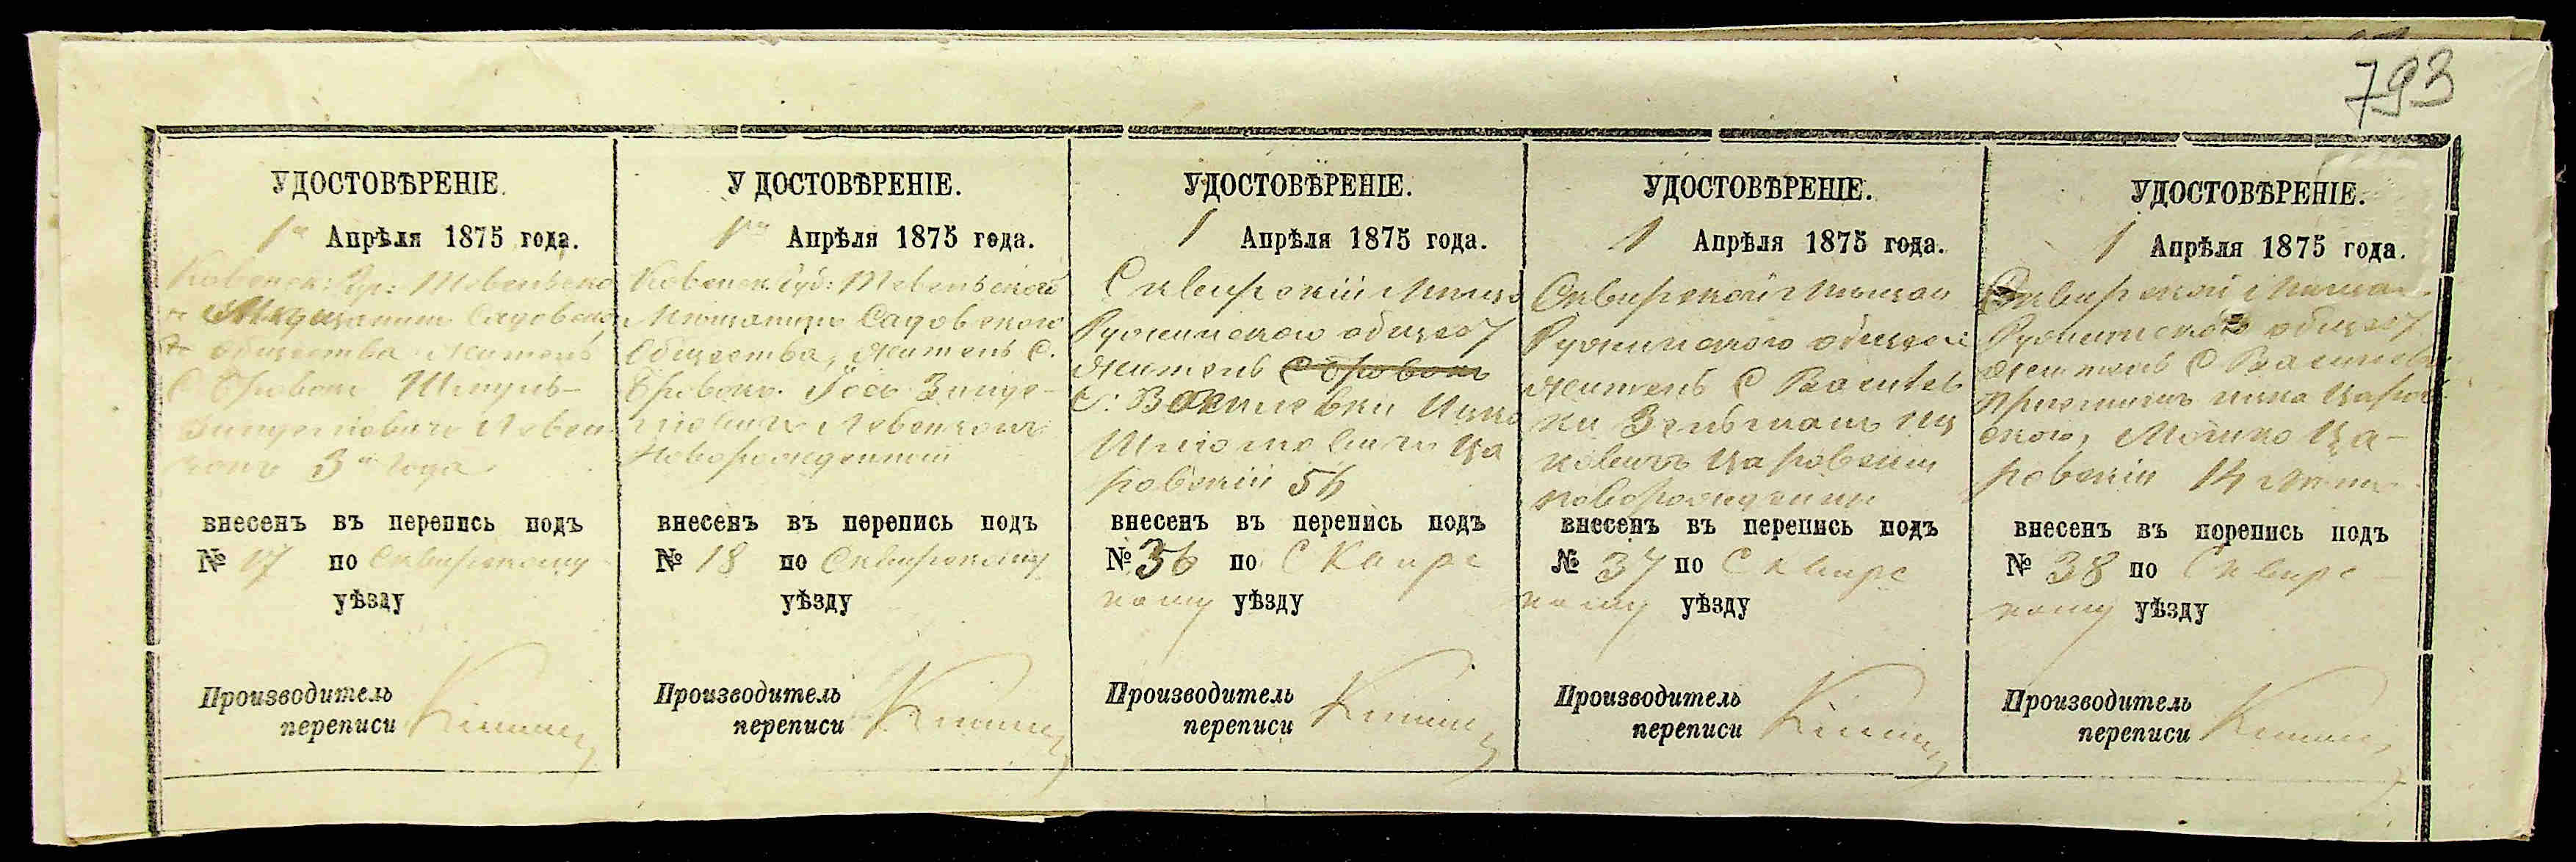 793
УДОСТОВѢРЕНІЕ.
1го Апрѣля 1875 года.
Ковенск: Гу:
Мещанинъ Садовско
общества житель
С Бровокъ Шмуль
3 года
внесенъ въ перепись подъ
№ 17 по Сквирскому
уѣзду
Производитель
переписи
УДОСТОВѢРЕНІЕ.
1го Апрѣля 1875 года.
Ковенск: Губ:
Мещанинъ Садовского
Общества, житель С.
Бровокъ.
Новорожденный
внесенъ въ перепись подъ
№ 18 по Сквирскому
уѣзду
Производитель
переписи
УДОСТОВѢРЕНІЕ.
1 Апрѣля 1875 года.
Сквирскій Мещ
Ружинского общест
житель С Бровокъ
С: Василевки Ицко
Ца
ровскій
внесенъ въ перепись подъ
№ 36 по Сквирс
кому уѣзду
Производитель
переписи
УДОСТОВѢРЕНІЕ.
1 Апрѣля 1875 года.
Сквирской Мещан
Ружинского общест
житель С Василев
ки Зельманъ Иц
ковичъ Царовскій
новорожденный
внесенъ въ перепись подъ
№ 37 по Сквирс
кому уѣзду
Производитель
переписи
УДОСТОВѢРЕНІЕ.
1 Апрѣля 1875 года.
Сквирской Мещан
Ружинского общест
житель С Василев
Царов
ского, Мошко Ца-
ровскій 14
внесенъ въ перепись подъ
№ 38 по Сквирс-
кому уѣзду
Производитель
переписи